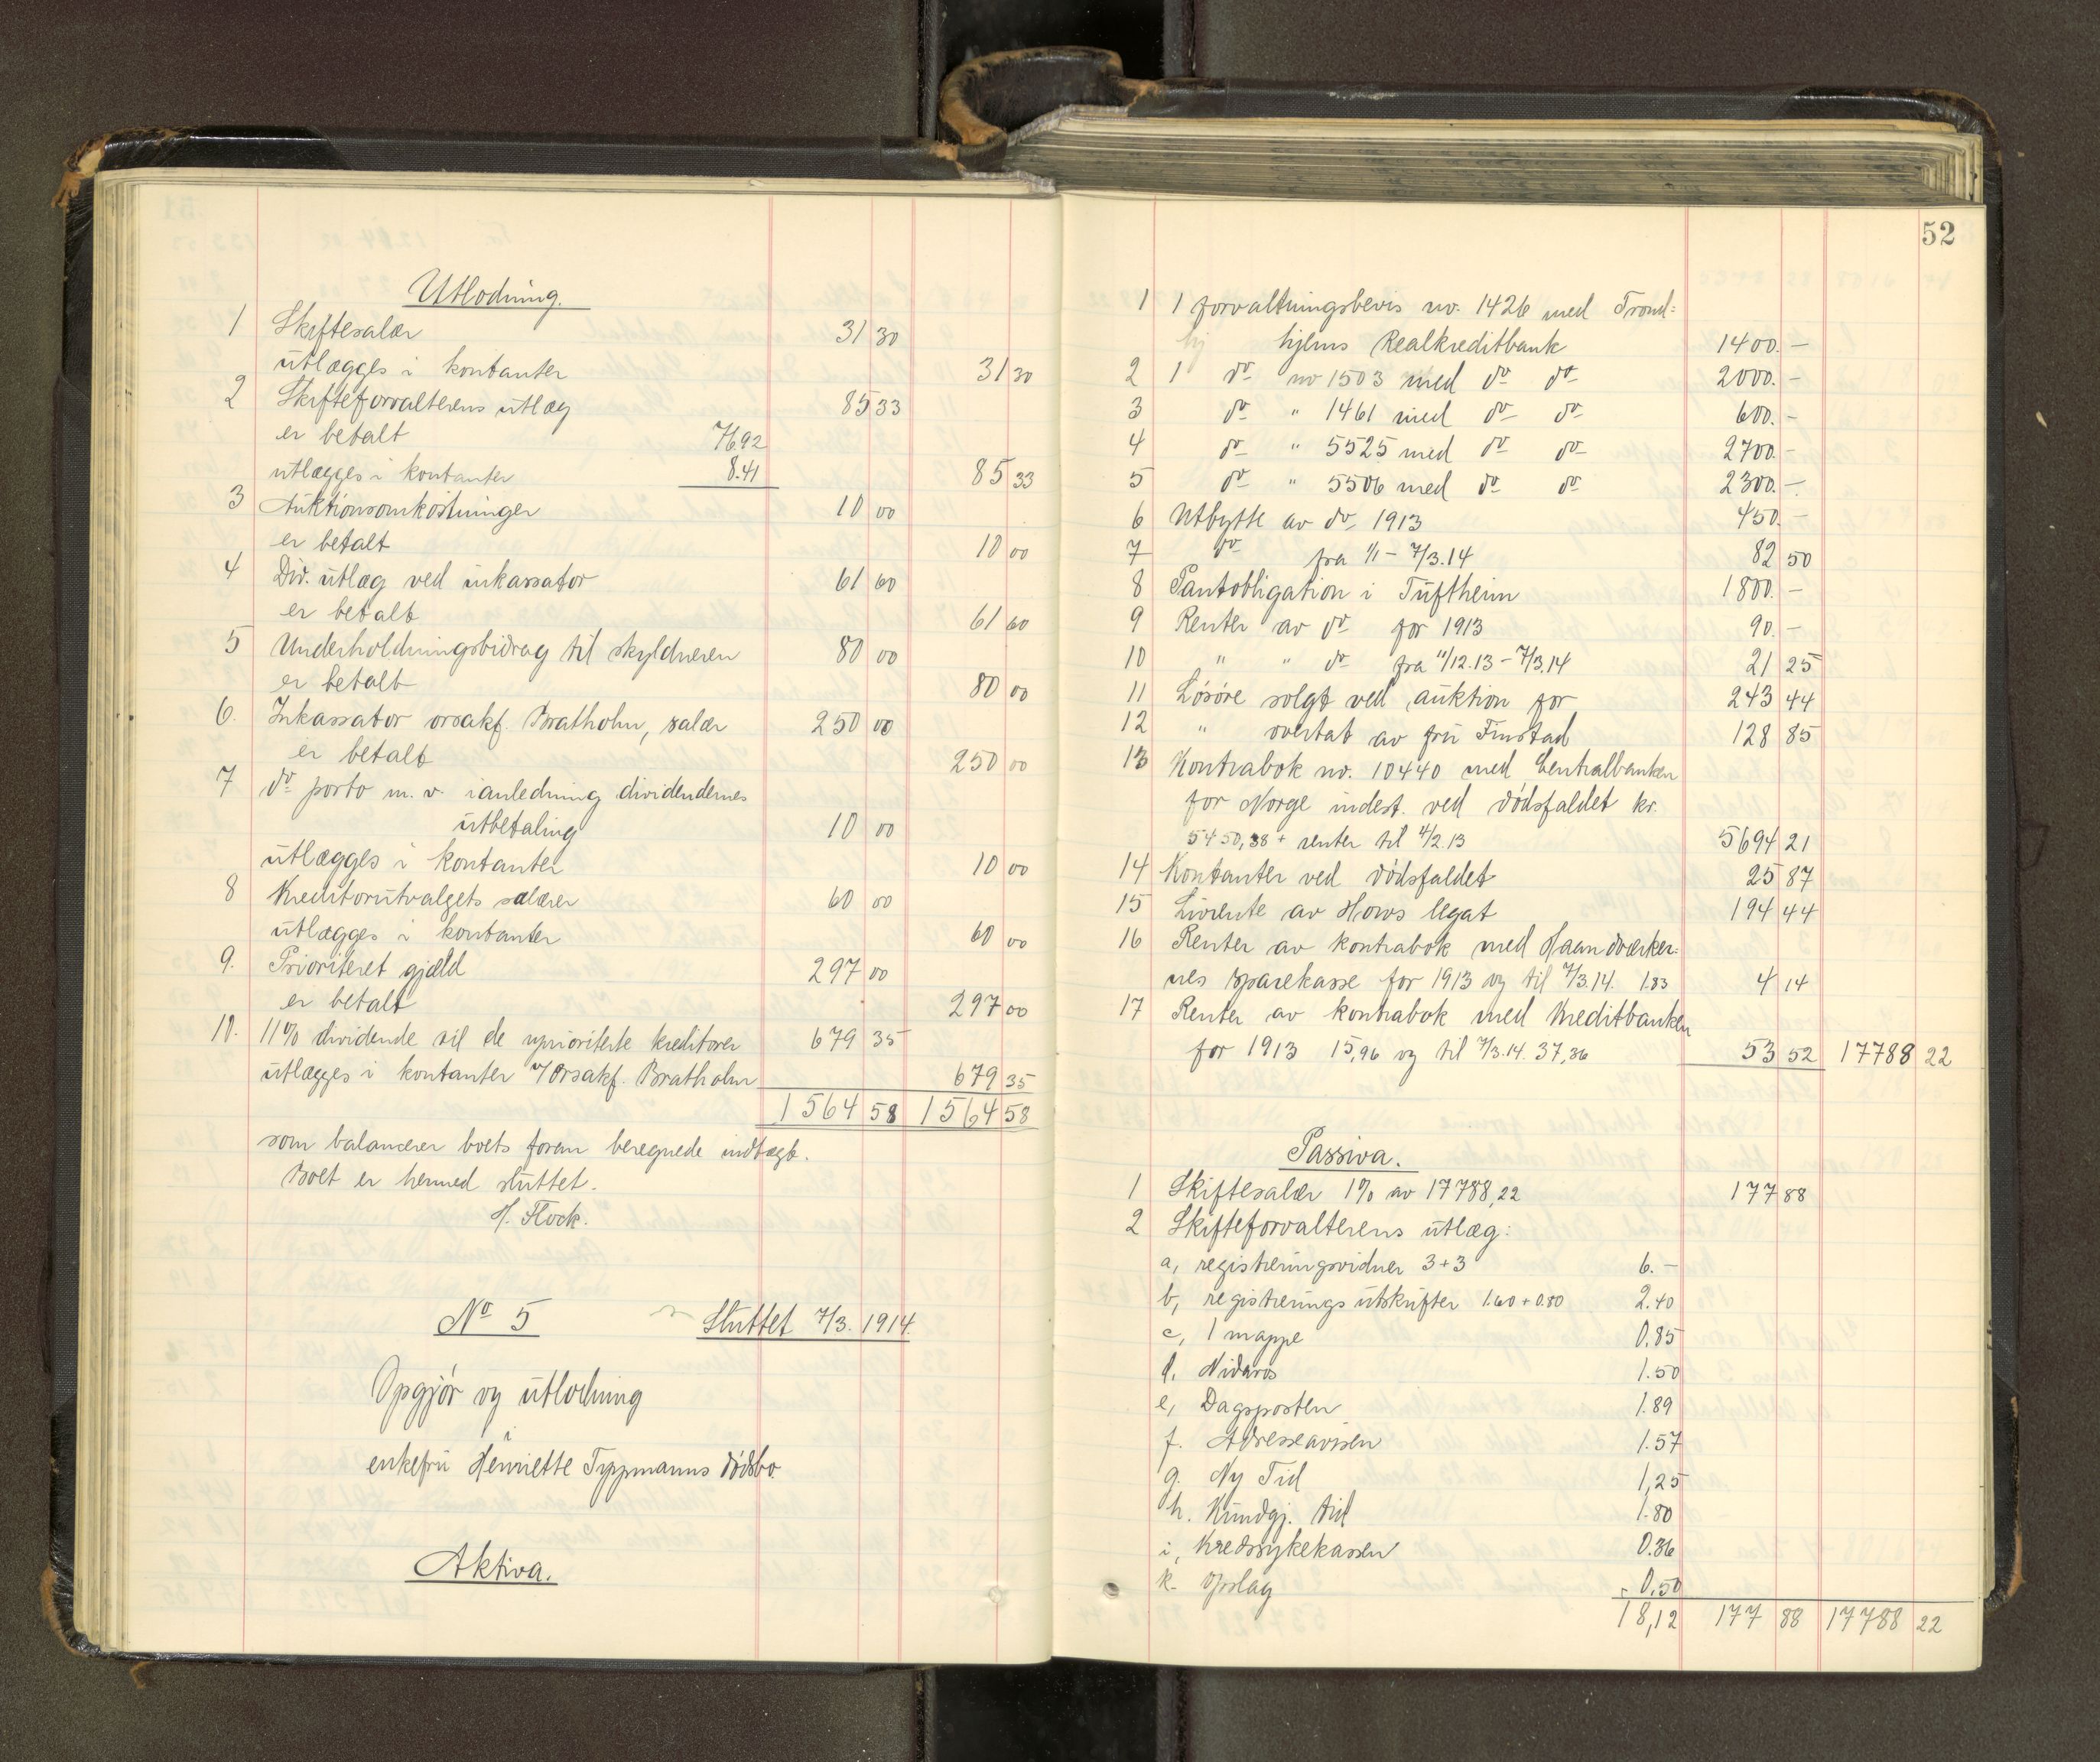 Utlodning.
1 Skiftesalær 31 30
utlægges i kontanter 31 30
2 Skifteforvalterens utlæg 85 33
er betalt 76.92
utlægges i kontanter 8.41 85 33
3 Auktionsomkostninger 10 00
er betalt 10 00
4 Div. utlæg ved inkassator 61 60
er betalt 61 60
5 Underholdningsbidrag til skyldneren 80 00
er betalt 80 00
6. Inkassator orsakf. Bratholm, salær 250 00
er betalt 250 00
7 do porto m. v. i anledning dividendernes
utbetaling 10 00
utlægges i kontanter 10 00
8 Kreditorutvalgets salærer 60 00
utlægges i kontanter 60 00
9. Prioriteret gjæld 297 00
er betalt 297 00
10. 11% dividende til de uprioriterte kreditorer 679 35
utlægges i kontanter v/ Orsakf. Bratholm 679 35
1564 58 1564 58
som balancerer boets foran beregnede indtægt.
Boet er hermed sluttet.
H. Flock.
No 5 Sluttet 7/3. 1914.
Opgjør og utlodning
i
enkefru Henriette Typpmanns dødsbo.
Aktiva.
52
1 1 forvaltningsbevis no. 1426 med Trond:
hjems Realkreditbank 1400. –
2 1 do no 1503 med do do 2000. –
3 do " 1461 med do do 600. –
4 do " 5525 med do do 2700. –
5 do " 5506 med do do 2300. –
6 Utbytte av do 1913 450. –
7 do fra 1/1 – 7/3.14 82 50
8 Pantobligation i Tuftheim 1800. –
9 Renter av do for 1913 90. –
10 " " do fra 11/12.13 – 7/3.14 21 25
11 Løsøre solgt ved auktion for 243 44
12 " overtat av fru Finstad 128 85
13 Kontrabok no. 10440 med Centralbanken
for Norge indest. ved dødsfaldet kr.
5450,38 + renter til 4/2.13 5694 21
14 Kontanter ved dødsfaldet 25 87
15 Livrente av Hows legat 194 44
16 Renter av kontrabok med Haandværker:
nes sparekasse for 1913 og til 7/3.14. 1.83 4 14
17 Renter av kontrabok med Kreditbanken
for 1913 15,96 og til 7/3.14. 37,36 53 52 17788 22
Passiva.
1 Skiftesalær 1% av 17788,22 177 88
2 Skifteforvalterens utlæg:
a, registreringsvidner 3+3 6. –
b, registrerings utskrifter 1.60 + 0.80 2.40
c, 1 mappe 0.85
d. Nidaros 1.50
e, Dagsposten 1.89
f. Adresseavisen 1.57
g. Ny Tid 1,25
h. Kundgj. tid 1.80
i, Kredssykekassen 0.36
k. Opslag 0,50
18,12 177 88 17788 22